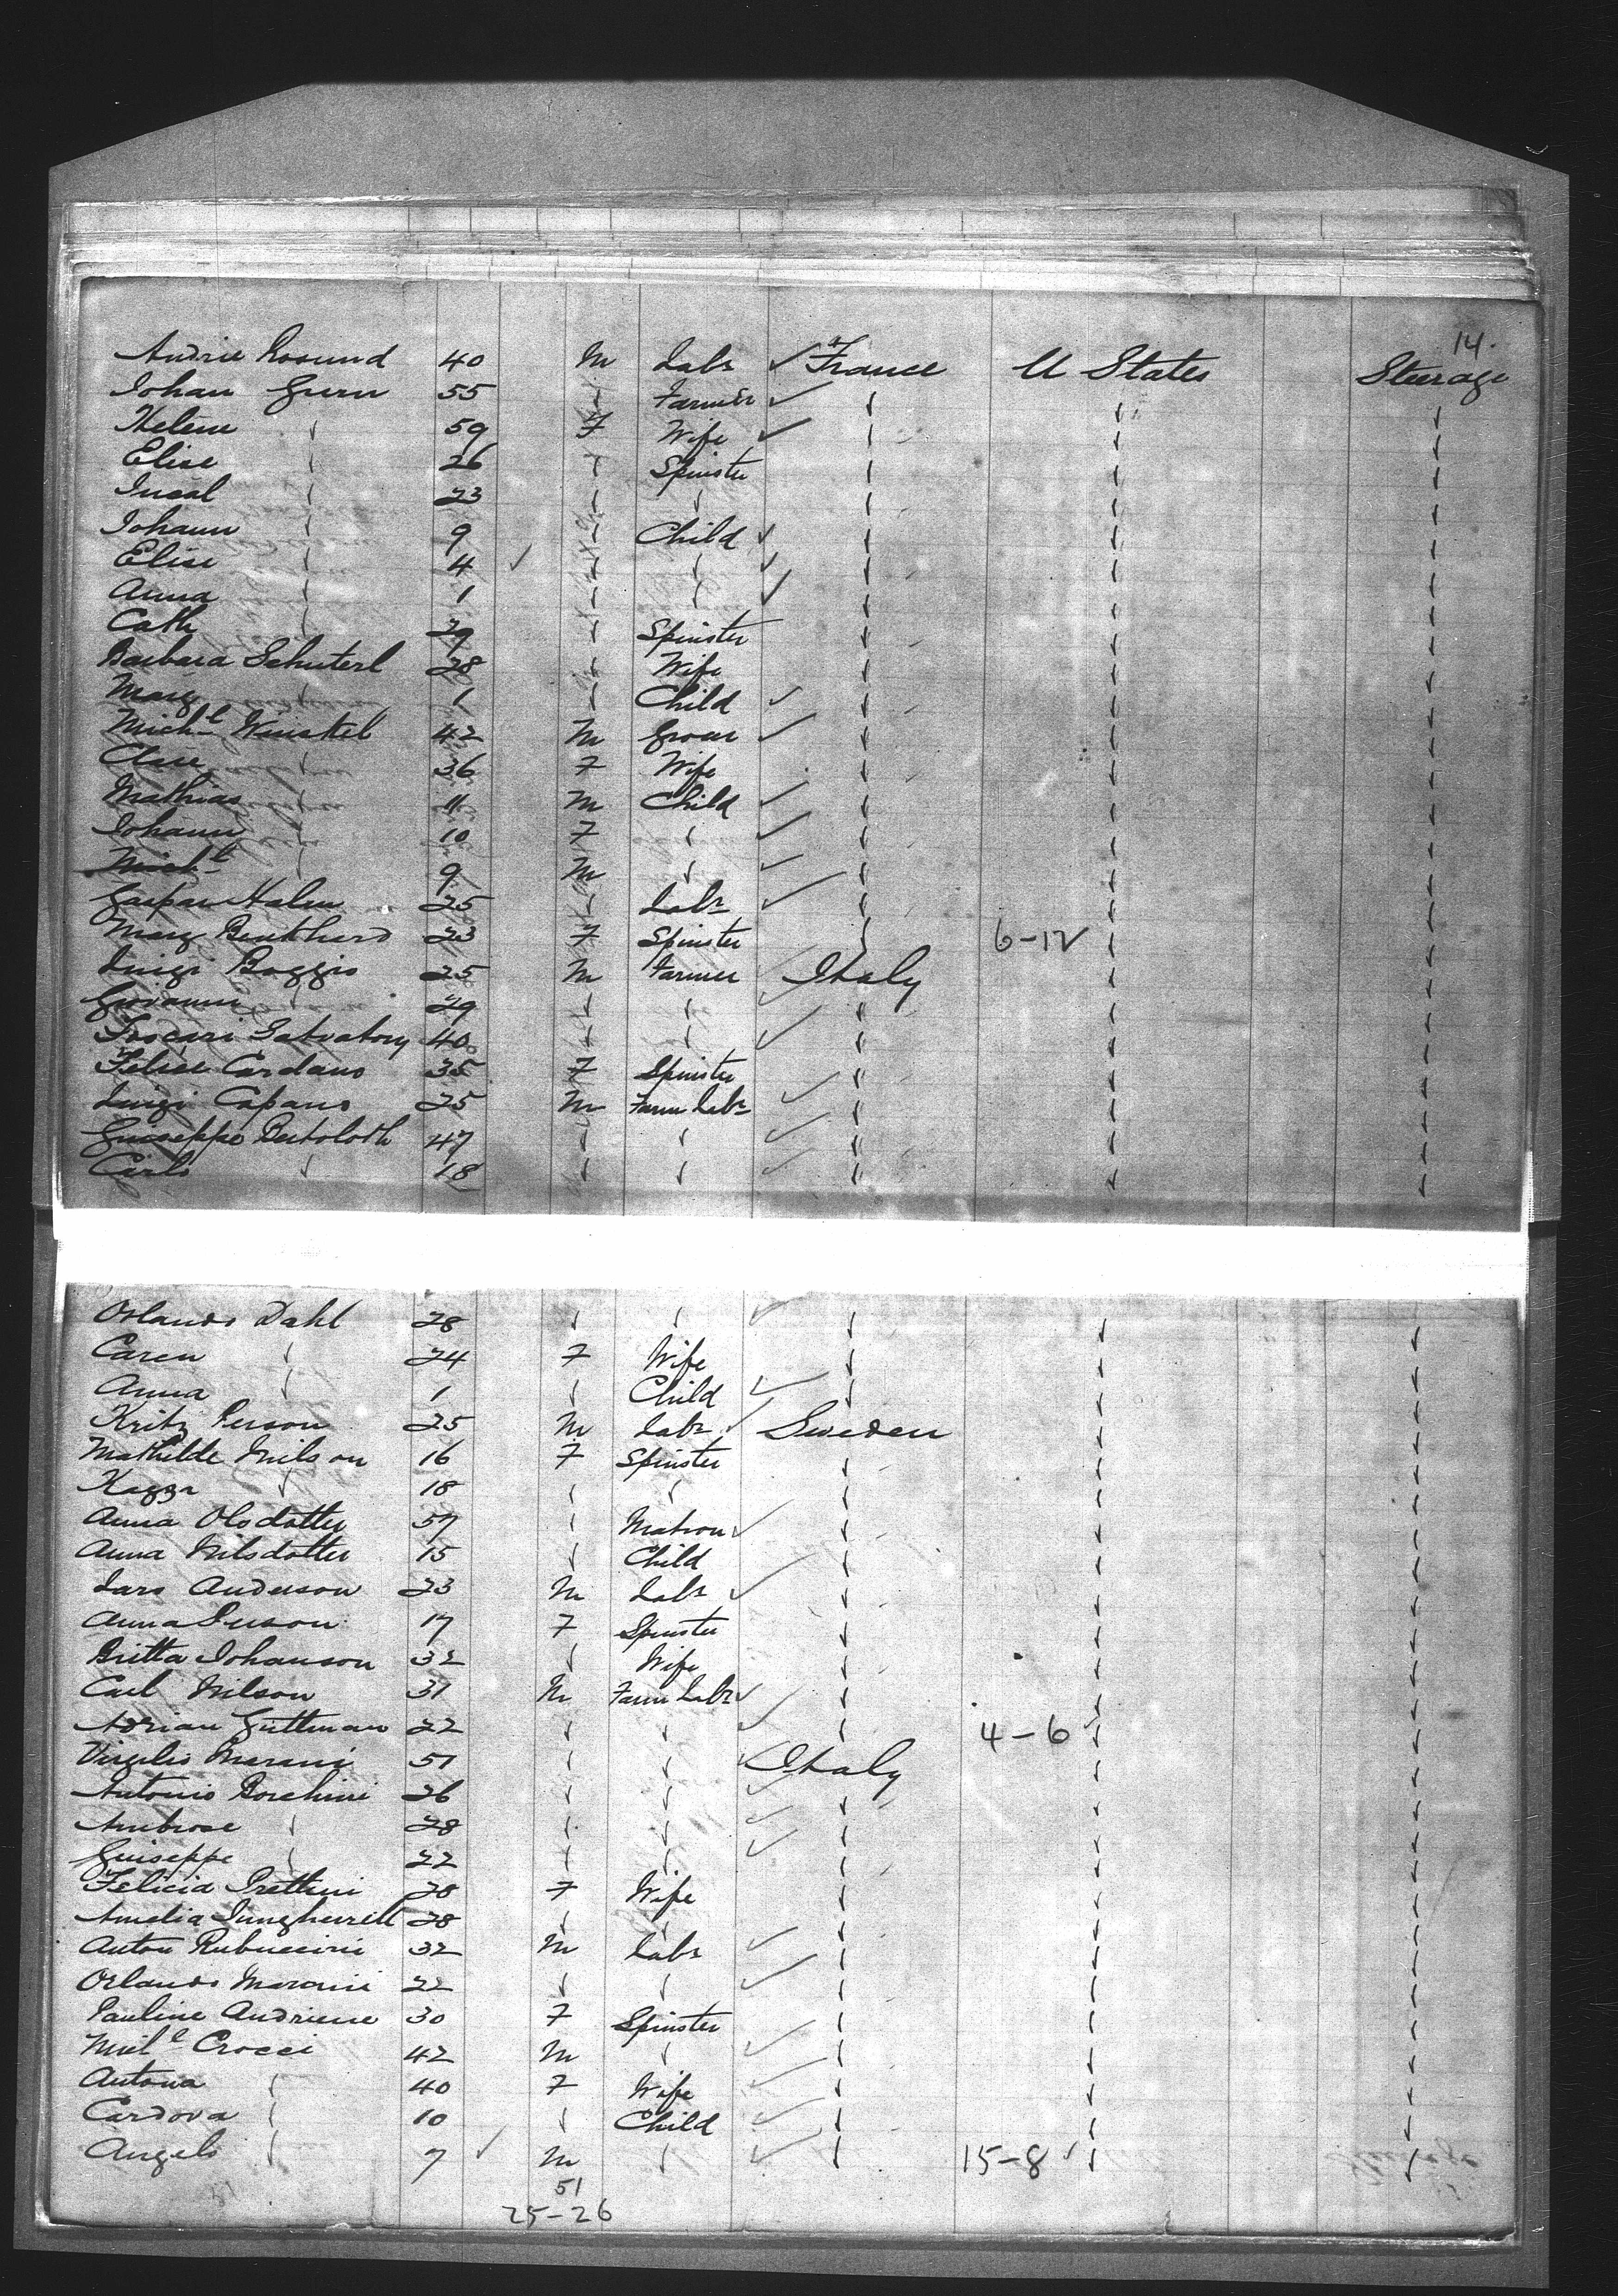 14.
Andrie Rosund 40 M Labr ✓ France U States Steerage
Johan Gurn 55 " Farmer ✓ " " "
Helene " 59 F Wife ✓ " " "
Elise " 26 " Spinster " " "
" 23 " " " " "
Johann " 9 " Child ✓ " " "
Elise " 4 ✓ " " ✓ " " "
Anna " 1 " " ✓ " " "
Cath " 29 " Spinster " " "
Barbara Schuterl 28 " Wife " " "
Marg " 1 " Child ✓ " " "
Michl Winskel 42 M Grocer ✓ " " "
" 36 F Wife " " "
Mathias " 11 M Child ✓ " " "
Johann " 10 F " ✓ " " "
Michl " 9 M " ✓ " " "
Gaspar Halm 25 " Labr ✓ " " "
Marg Burkhard 23 F Spinster " 6-12 " "
Luigi Boggio 25 M Farmer ✓ Italy " "
Giovanni " 29 " " ✓ " " "
Foscari Salvatory 40 " " ✓ " " "
Felice Cardano 35 F Spinster " " "
Luigi Capano 25 M Farm Labr ✓ " " "
Guiseppe Bertoloth 47 " " ✓ " " "
Carlo " 18 " " ✓ " " "
Orlando Dahl 28 " " ✓ " " "
Caren " 24 F Wife " " "
Anna " 1 " Child ✓ " " "
Kritz Person 25 M Labr ✓ Sweden " "
Mathilde Nilson 16 F Spinster " " "
" 18 " " " " "
Anna Olsdotter 57 " Matron ✓ " " "
Anna Nilsdotter 15 " Child " " "
Lars Anderson 23 M Labr ✓ " " "
Anna Person 17 F Spinster " " "
Britta Johanson 32 " Wife " " "
Carl Nilson 31 M Farm Labr ✓ " " "
Adrian Guttman 22 " " ✓ " 4-6 " "
Virgilio Marani 51 " " ✓ Italy " "
Antonio Borchini 26 " " ✓ " " "
Ambrose " 28 " " ✓ " " "
Guiseppe " 22 " " ✓ " " "
Felicia Prettini 28 F Wife " " "
Amelia 28 " " " " "
Anton Rubuccini 32 M Labr ✓ " " "
Orlando Marani 22 " " ✓ " " "
Pauline Andriene 30 F Spinster " " "
Crocci 42 M " ✓ " " "
Antona " 40 F Wife ✓ " " "
Cardova " 10 " Child ✓ " " "
Angelo " 7 ✓ M " ✓ " 15-8 ✓ " "
51
25-26